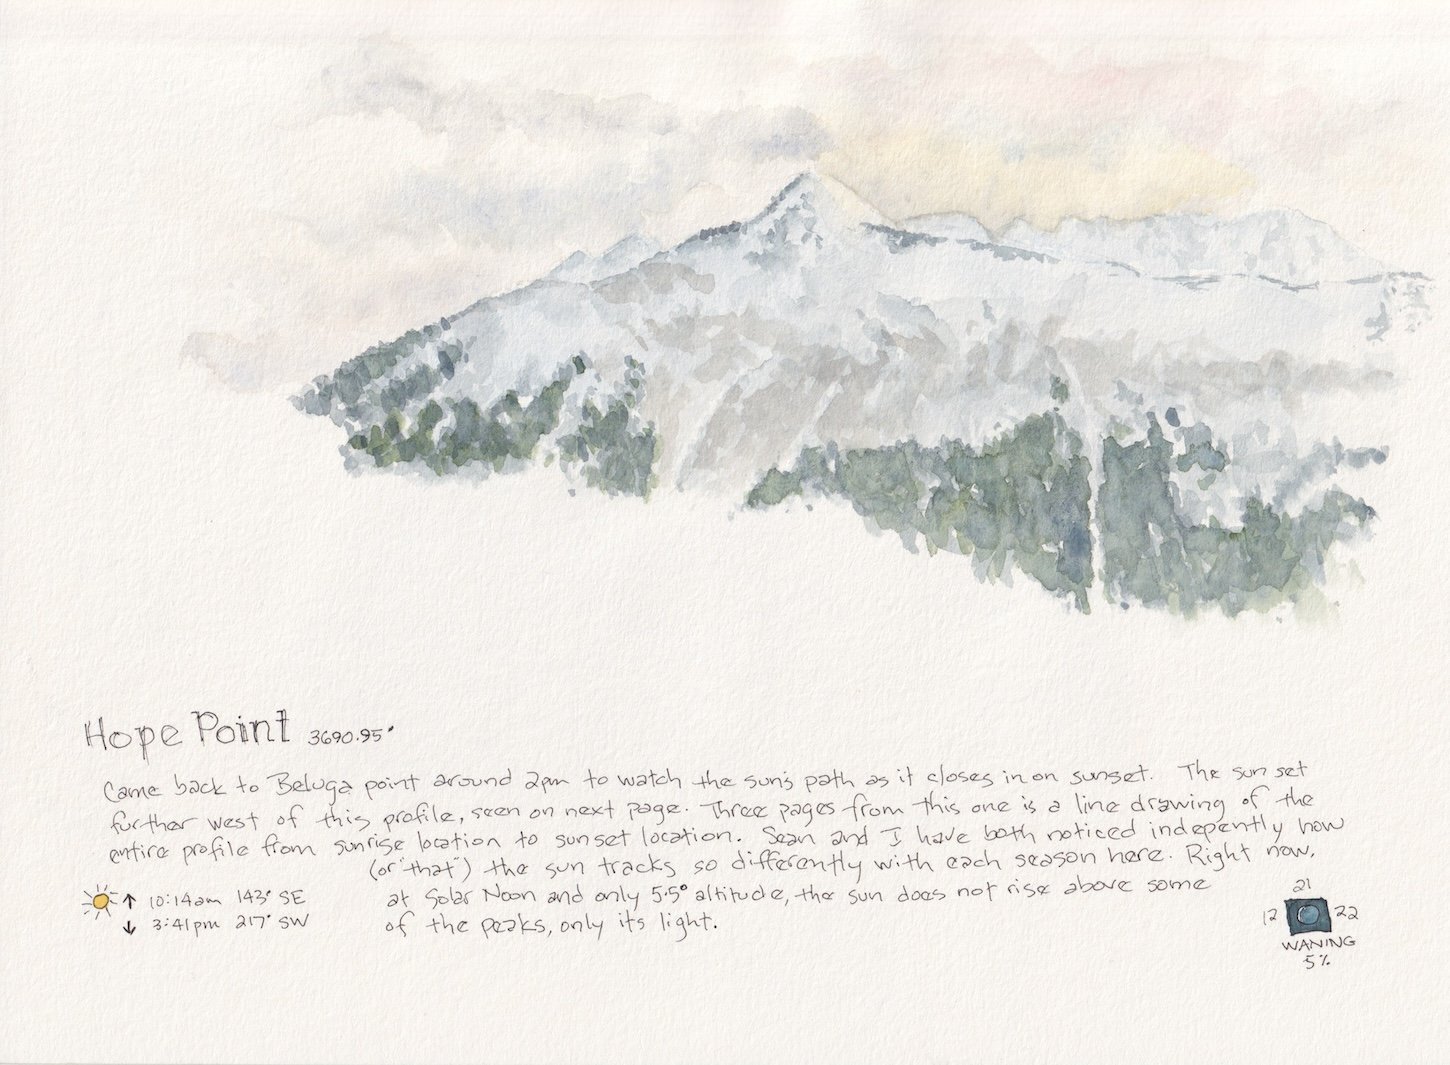 Hope Point 3690.95'
Came back to Beluga point around 2pm to watch the sun's path as it closes in on sunset. The sun set
further west of this profile, seen on next page. Three pages from this one is a line drawing of the
entire profile from sunrise location to sunset location. Sean and I have both noticed indepently how
(or "that") the sun tracks so differently with each season here. Right now,
at Solar Noon and only 5.5° altitude, the sun does not rise above some
of the peaks, only its light.
↑ 10:14am 143° SE
↓ 3:41pm 217° SW
21
12 22
WANING
5%